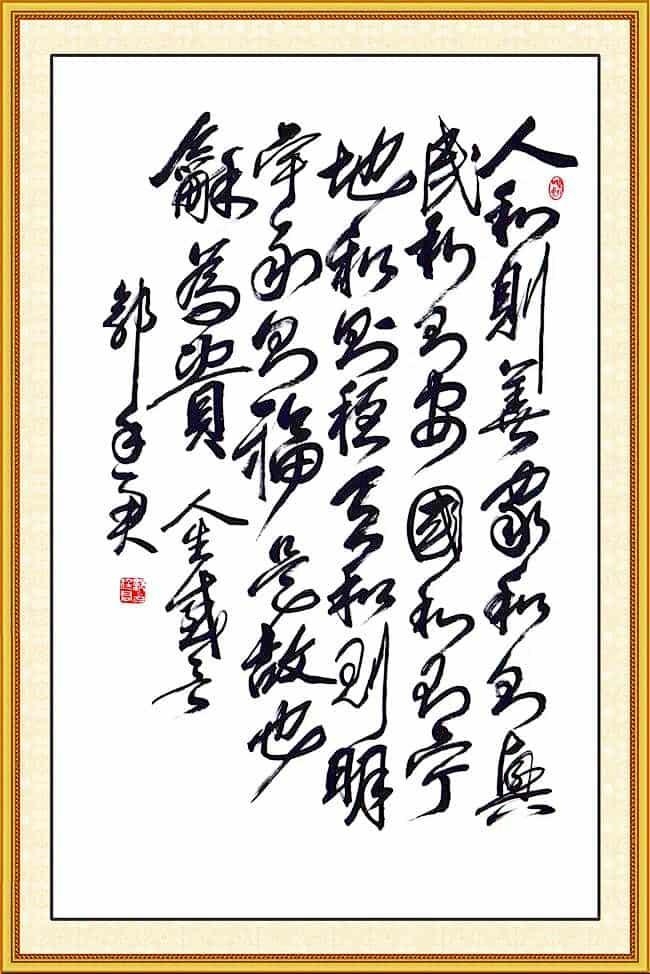 人和則善家和則興
民和則安國和則宁
地和則天和則明
宇和則福是故也
龢為貴 人生感言